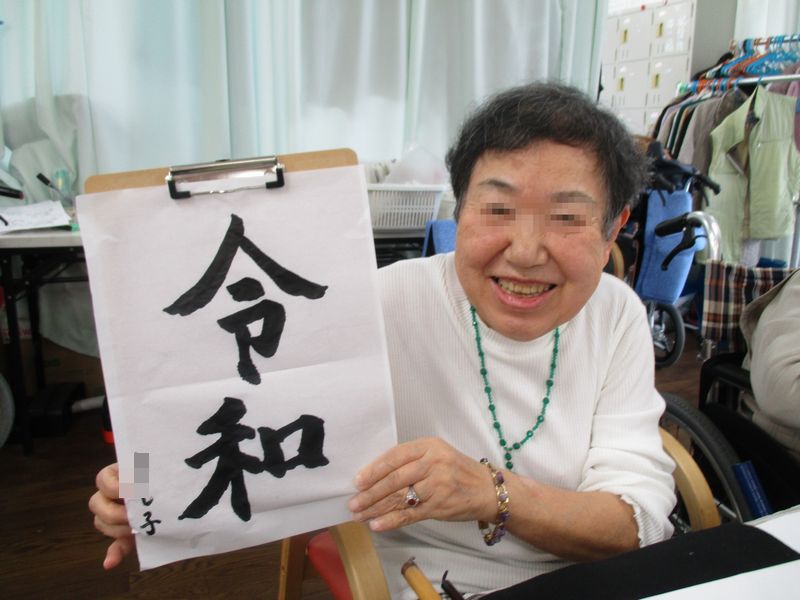 令
和
子